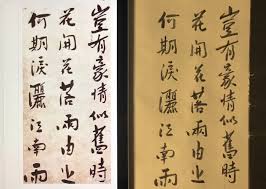 豈有豪情似舊時
花開花落兩由之
何期淚灑江南雨
豈有豪情似舊時
花開花落兩由之
何期淚灑江南雨